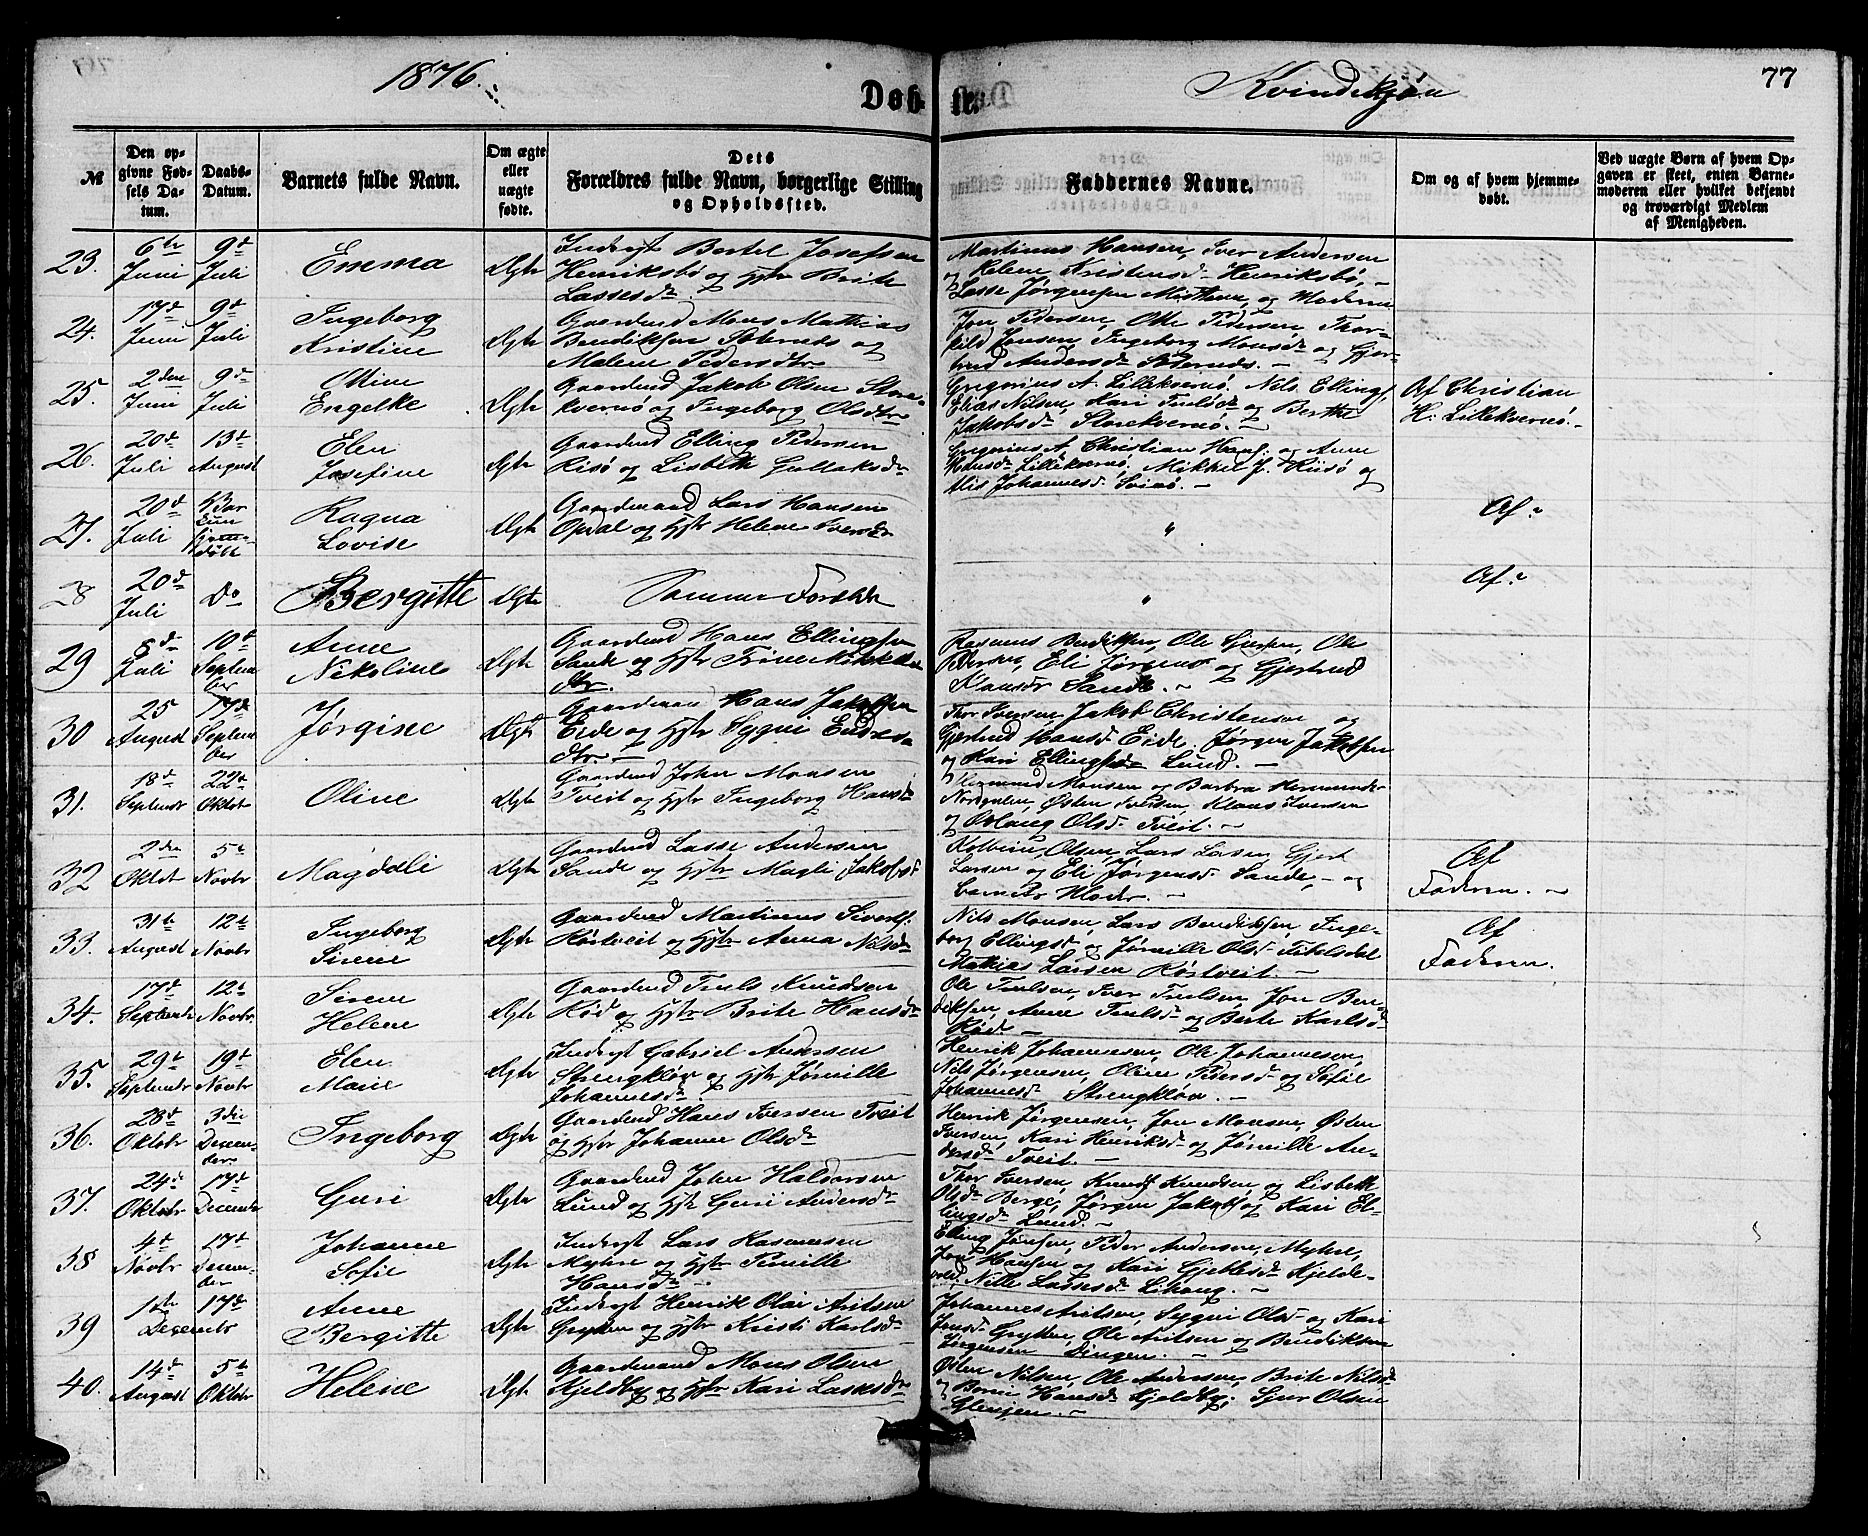 1876.
Døbte.
Kvindekjøn
77
№
Den opgivne Fødsels Datum.
Daabs-Datum.
Barnets fulde Navn.
Om ægte eller uægte fødte.
Dets Forældres fulde Navn, borgerlige Stilling og Opholdssted.
Faddernes Navne.
Om og af hvem hjemmedøbt.
Ved uægte Børn af hvem Opgaven er skeet, enten Barnemoderen eller hvilket bekjendt og troværdigt Medlem af Menigheden.
23.
6te Juni
9de Juli
Emma
Ægte
Indrgst Bertel Josefsen
Henriksbø og Hstr Brite
Lassesd.
Martinus Hansen, Iver Andersen
og Helene Kristensd. Henriksbø,
Lasse Jørgensen og Moderen
24.
17de Juni
9de Juli
Ingeborg
Kristine
Ægte
Gaardmd Mons Mathias
Bendiksen og
Malene Pedersdtr
Jon Pedersen, Otte Pedersen, Thor-
Jonsen, Ingeborg Monsdr og Gjer-
trud Andersd.
25.
2den Juni
9de Juli
Oline
Engelke
Ægte
Gaardmd Jakob Olsen Store-
kvernø og Ingeborg Olsdtr
Gregorius A. Lillekvernø, Nils Ellings,
Elias Nilsen, Kari Trulsd. og Berthe
Jakobsd. Storekvernø.
Af Christian
H. Lillekvernø.
26.
20de Juli
13de August
Elen
Josefine
Ægte
Gaardmd Elling Pedersen
Risø og Lisbeth Gullaksdr
Gregorius A, Christian Hans. og Anne
Hansd. Lillekvernø. Mikkel J. Riisø og
Johannesd.
27.
20de Juli
Ragna
Lovise
Ægte
Gaardmand Lars Hansen
Opdal og Hstr Helene Iversdr
"
Af.
28
20de Juli
Do
Bergitte
Ægte
Samme Forældre
"
Af.
29
5de Juli
10de September
Anne
Nikoline
Ægte
Gaardmd Hans Ellingsen
Sande og Hstr Trine Mikkels-
dtr.
Rasmus Bendiksen, Ole
Eli Jørgensd. og Gjertrud
Hansdr Sande.
30
25 August
17de September
Jørgine
Ægte
Gaardmand Hans Jakobsen
Eide og Hstr Sygni Endres-
dtr
Thor Iversen, Jakob Christensen og
Gjertrud Hansd. Eide, Jørgen Jakobsen
og Kari Ellingsdr Lund.
31.
18de Septembr
22de Oktobr
Oline
Ægte
Gaardmd John Monsen
Tveit og Hstr Ingeborg Hansd.
Hermund Monsen og Barbra Hermundsdr
Nordgulen, Østen Iversen, Klaus Iversen
og Oslaug Olsd. Tveit.
32
2den Oktbr
5te Novbr
Magdeli
Ægte
Gaardmd Lasse Andersen
Sande og Hstr Magli Jakobsd
Kolbein Olsen, Lars Lassen, Gjert
Larsen og Eli Jørgensd. Sande, og
barnets Moder.
Af
Faderen.
33.
31te August
12te Novbr
Ingeborg
Sirene
Ægte
Gaardmd Martinus Sivertsen
Kørtveit og Hstr Anna Nilsdr
Nils Monsen, Lars Bendiksen, Inge-
borg Ellingsd. og Jørnille Olsd.
Mathias Larsen Kørtveit.
Af
Faderen.
34.
17de Septembr
12te Novbr.
Sirene
Helene
Ægte
Gaardmd Truls Knudsen
Rød og Hstr Brite Hansdr
Ole Trulsen, Iver Trulsen, Jon Ben-
diksen, Anne Trulsdr og Berte Karlsdr
Rød.
35.
29de Septembr
19de Novbr
Elen
Marie
Ægte
Indrgst Gabriel Andersen
Strengkløv og Hstr Jørnille
Johannesdr
Henrik Johannesen, Ole Johannesen,
Nils Jørgensen, Oline Pedersd. og Sofie
Johannesd. Strengkløv.
36.
28de Oktobr
3die December
Ingeborg
Ægte
Gaardmd Hans Iversen Tveit
og Hstr Johanne Olsdr
Henrik Jørgensen, Jon Monsen, Østen
Iversen, Kari Henriksdr og Jørnille An-
dersdr Tveit.
37.
24de Oktobr
17de Decembr
Guri
Ægte
Gaardmd John Haldorsen
Lund og Hstr Guri Andersdr
Thor Iversen, Knud Knudsen og Lisbeth
Olsdr Berge, Jørgen Jakobs. og Kari El-
lingsdr Lund.
38
4de Novbr
17de December
Johanne
Sofie
Ægte
Indrgst Lars Rasmussen
Myhre og Hstr Pernille
Hansdr
Elling Jønsen, Peder Andersen, Myhre,
Jon Hansen og Kari Gjertsdr Kjelde-
vold, Nille Lassesdr
39
1ste Decembr
17de
Anne
Bergitte
Ægte
Indrgst Henrik Olai Antsen
Grytten og Hstr Kristi Karlsdr
Johannes Antsen, Sygni Olsd. og Kari
Jonsd. Grytten, Ole Antsen og Bendik
Jørgensen Dingen.
40.
14de August
5te Oktobr
Helene
Ægte
Gaardmand Mons Olsen
Kjeldby og Hstr Kari Lassesdr
Østen Nilsen, Ole Andersen, Brite Nilsdr
og Hansd. Kjeldby, Sjur Olsen